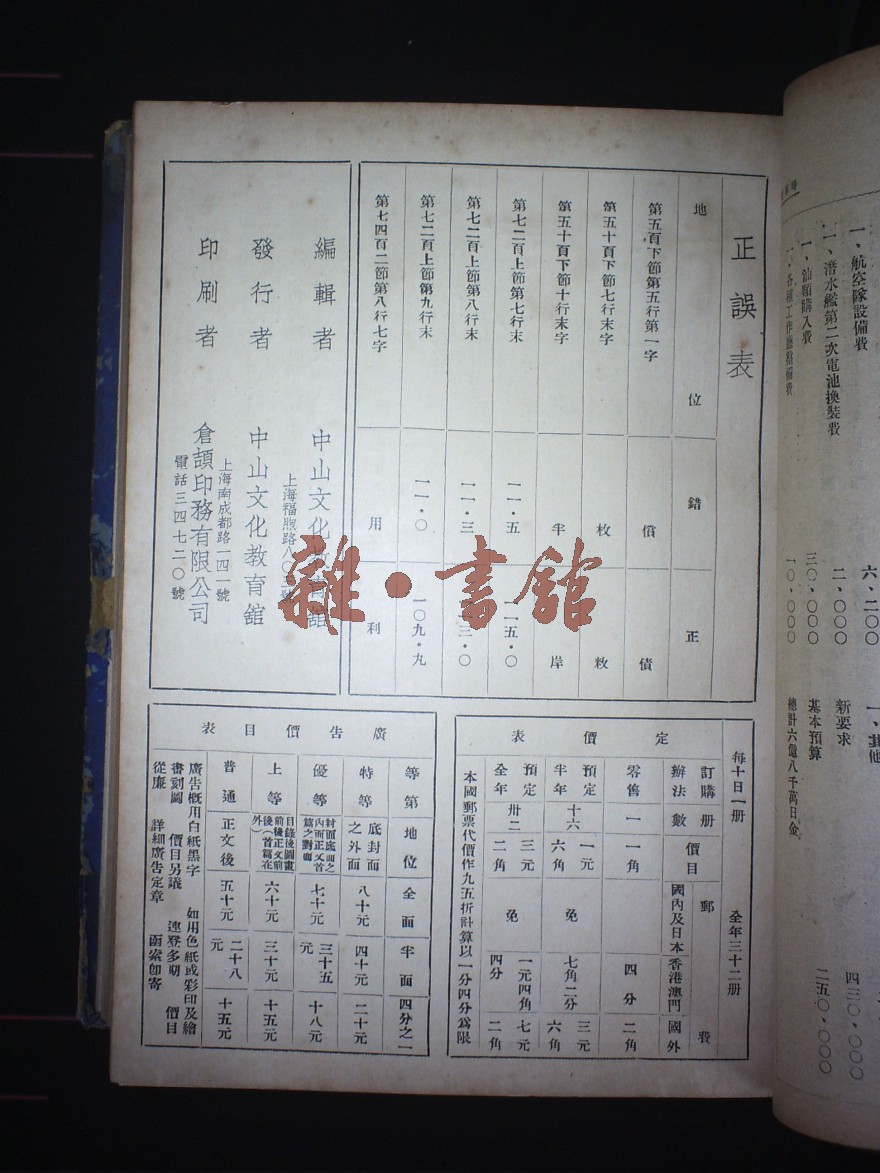 正誤表
地位 錯 正
第五頁下節第五行第一字 償 債
第五十頁下節七行末字 枚 敉
第五十頁下節十行末字 半 岸
第七二頁上節第七行末 一一·五 一一五·〇
第七二頁上節第八行末 一一·三
第七二頁上節第九行末 一一·〇 一〇九·九
第七四頁二節第八行七字 用 利
編輯者 中山文化教育館
發行者 中山文化教育館
上海南成都路一四一號
印刷者 倉頡印務有限公司
電話三四七二〇號
定價表
每十日一册 全年三十二册
訂購辦法 册數 價目 郵費 國內及日本 香港澳門 國外
零售 一 一角 四分 二角
預定半年 十六 一元六角 免 七角二分 三元六角
預定全年 卅二 三元二角 免 一元四角四分 七元二角
本國郵票代價作九五折計算以一分四分爲限
廣告價目表
等第 地位 全面 半面 四分之一
特等 底封面之外面 八十元 四十元 二十元
優等 封面底面之內面正文首篇之對面 七十元 三十五元 十八元
上等 目錄後圖畫前後正文前後(首篇在外) 六十元 三十元 十五元
普通 正文後 五十元 二十八元 十五元
廣告概用白紙黑字 如用色紙或彩印及繪
畫刻圖 價目另議 連登多期 價目
從廉 詳細廣告定章 函索即寄
雜·書館
一、航空隊設備費 六·二〇〇
一、潛水艦第二次電池換裝費 二·〇〇〇
一、汕頭購入費 三〇·〇〇〇
一〇·〇〇〇
一、其他
新要求 四三〇·〇〇〇
基本預算 二五〇·〇〇〇
總計六億八千萬日金